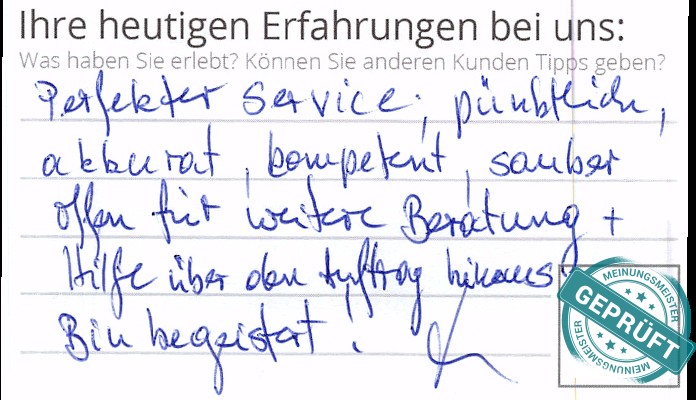 Ihre heutigen Erfahrungen bei uns:
Was haben Sie erlebt? Können Sie anderen Kunden Tipps geben?
Perfekter Service, pünktlich,
akkurat, kompetent, sauber
offen für weitere Beratung +
Hilfe über den Auftrag hinaus!
Bin begeistert!
MEINUNGSMEISTER
GEPRÜFT
MEINUNGSMEISTER